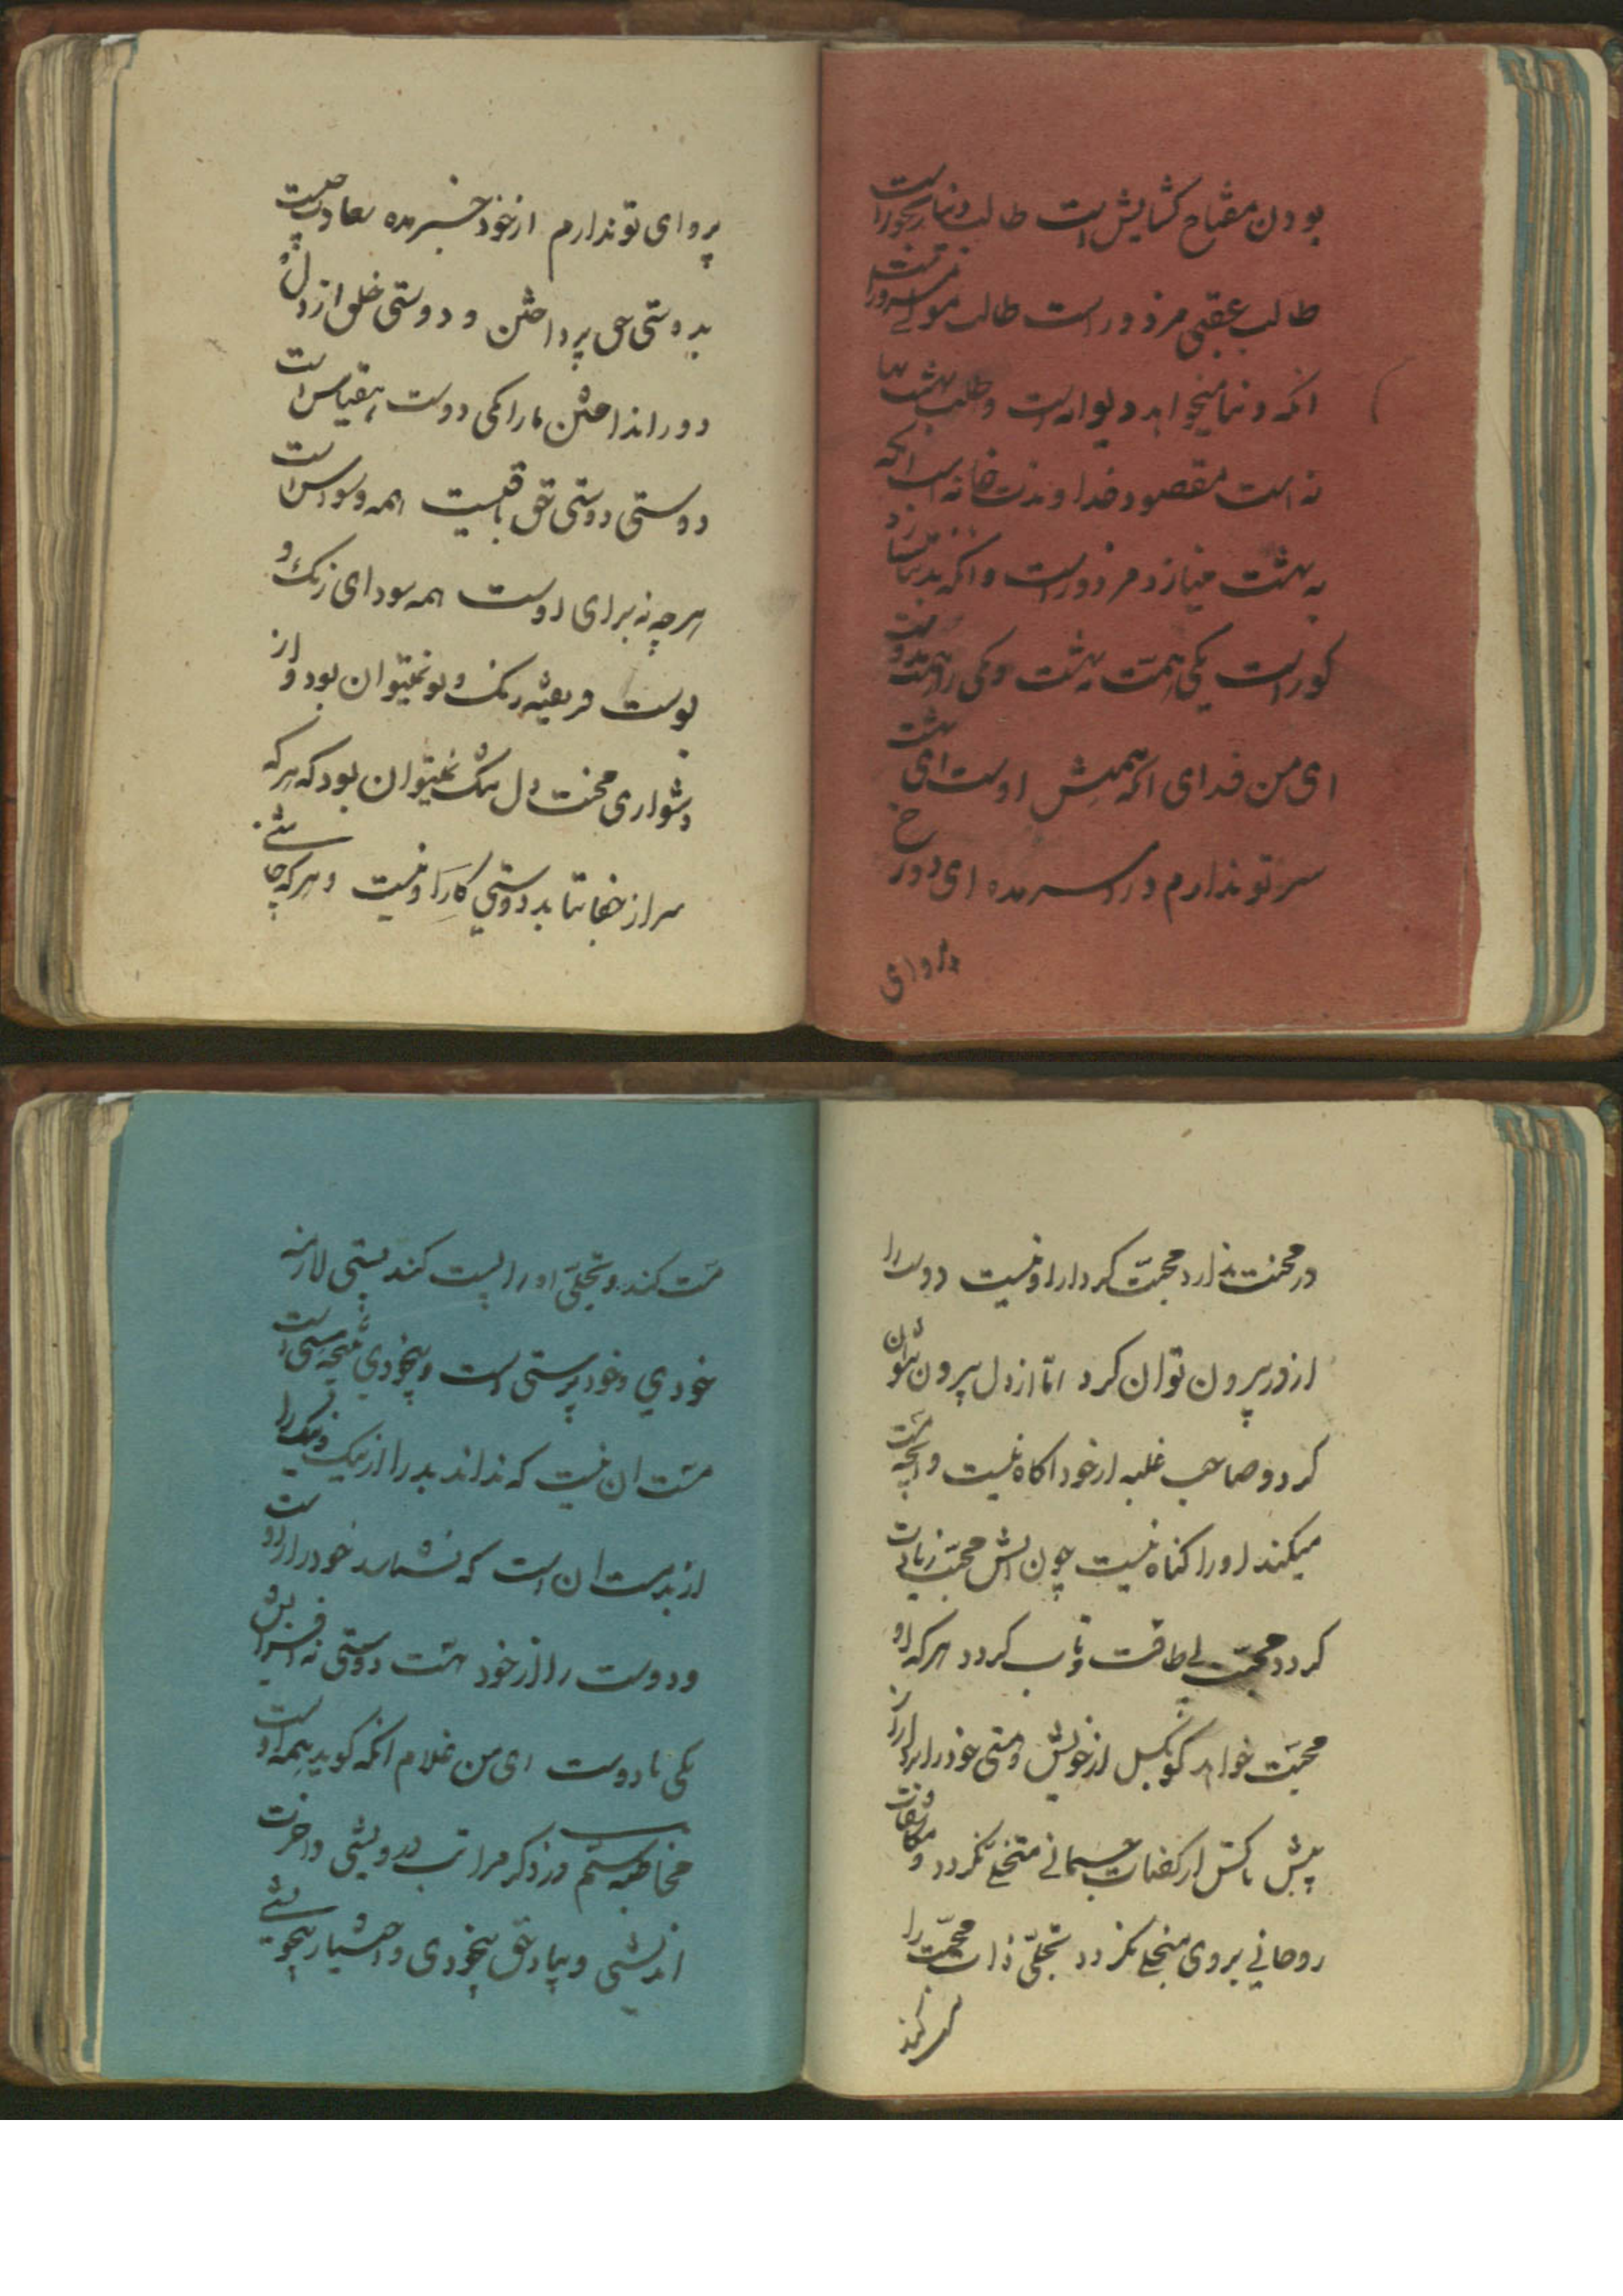 بودن مفتاح کشایش است طالب دنیا رنجور است
طالب عقبی مزدور است طالب مولی مسرور است
انکه دنیا میخواهد دیوانه است و طلب بهشت بها
نه است مقصود خداوند خانه است انکه
به بهشت مینازد مزدور است وانکه بدنیا نازد
کور است یکی را همت بهشت و یکی را همت دوست
ای من فدای انکه همتش اوست ای بهشت
سر تو ندارم درد سر مده ای دوزخ
پروای
پروای تو ندارم از خود خبر مده سعادت چیست
بدوستی حق پرداختن و دوستی خلق از دل
دور انداختن ما را کی دوست بقیاس است
دوستی دوستی حق باقیست همه وسواس است
هرچه نه برای اوست همه سودای رنک و
بوست فریفته رنک و بو نمیتوان بود و از
دشواری محنت دل تنک نمیتوان بود که هرکه
سر از جفا بتابد دوستی کار او نیست و هرکه چاشنی
در محنت ندارد محبت کردار او نیست دوست را
از در بیرون توان کرد اما از دل بیرون نتوان
کرد و صاحب غلبه از خود اکاه نیست وانچه مست
میکند او را کناه نیست چون اتش محبت زبانه
کردد محبت بی طاقت و تاب کردد هرکه او
محبت خواهد کو بکسل از خویش و متی خود را بردار از
پیش تا کس از کثافات جسمانی متخلی نکردد و مکاشفات
روحانی بروی منجلی نکردد تجلی ذات محبت را
مست کند
مست کند و تجلی او را پست کند پستی لازمه
خودی و خودپرستی است و بیخودی نتیجه مستی است
مست ان نیست که نداند بد را از نیک و نیک را
از بد مست ان است که نشناسد خود را از دوست
و دوست را از خود هست دوستی نه افزایش
یکی با دوست ای من غلام انکه کوید همه اوست
مخاطبه ششم در ذکر مراتب درویشی و اخرت
اندیشی و بیاد حق بیخودی و اختیار بیخویشی